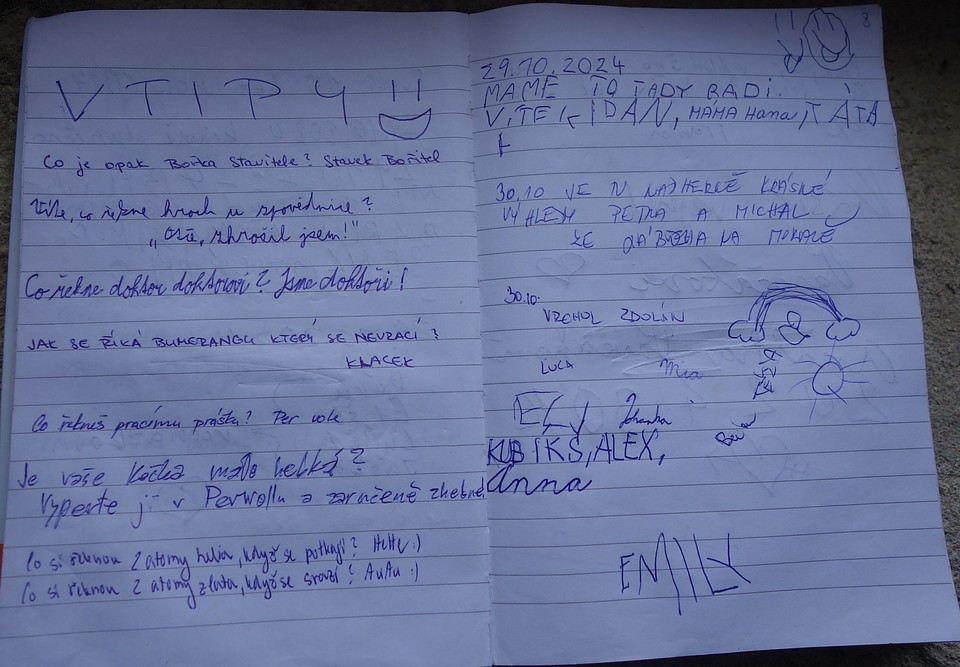 VTIPY
Co je opak Bořka Stavitele? Stavek Bořitel
Víte, co řekne hroch u zpovědnice?
„Otče, zhrošil jsem!"
Co řekne doktor doktorovi? Jsme doktoři!
JAK SE ŘÍKÁ BUMERANGU KTERÝ SE NEVRACÍ?
KLACEK
Co řekneš pracímu prášku? Per vole
Je vaše kočka málo hebká?
Vyperte ji v Perwollu a zaručeně zhebne.
Co si řeknou 2 atomy helia, když se potkají? HeHe :)
Co si řeknou 2 atomy zlata, když se srazí? AuAu :)
8
29.10.2024
MÁME TO TADY RADI.
VÍTEK I DAN, MAMA Hana, TÁTA
30.10 JE TU NADHERNĚ KRÁSNÉ
VÝHLEDY PETRA A MICHAL
ZE NA MORAVĚ
30.10.
VRCHOL ZDOLÁN
LUCA Mia
ELY Johanka
KUBÍKS, ALEX,
Anna
EMILY